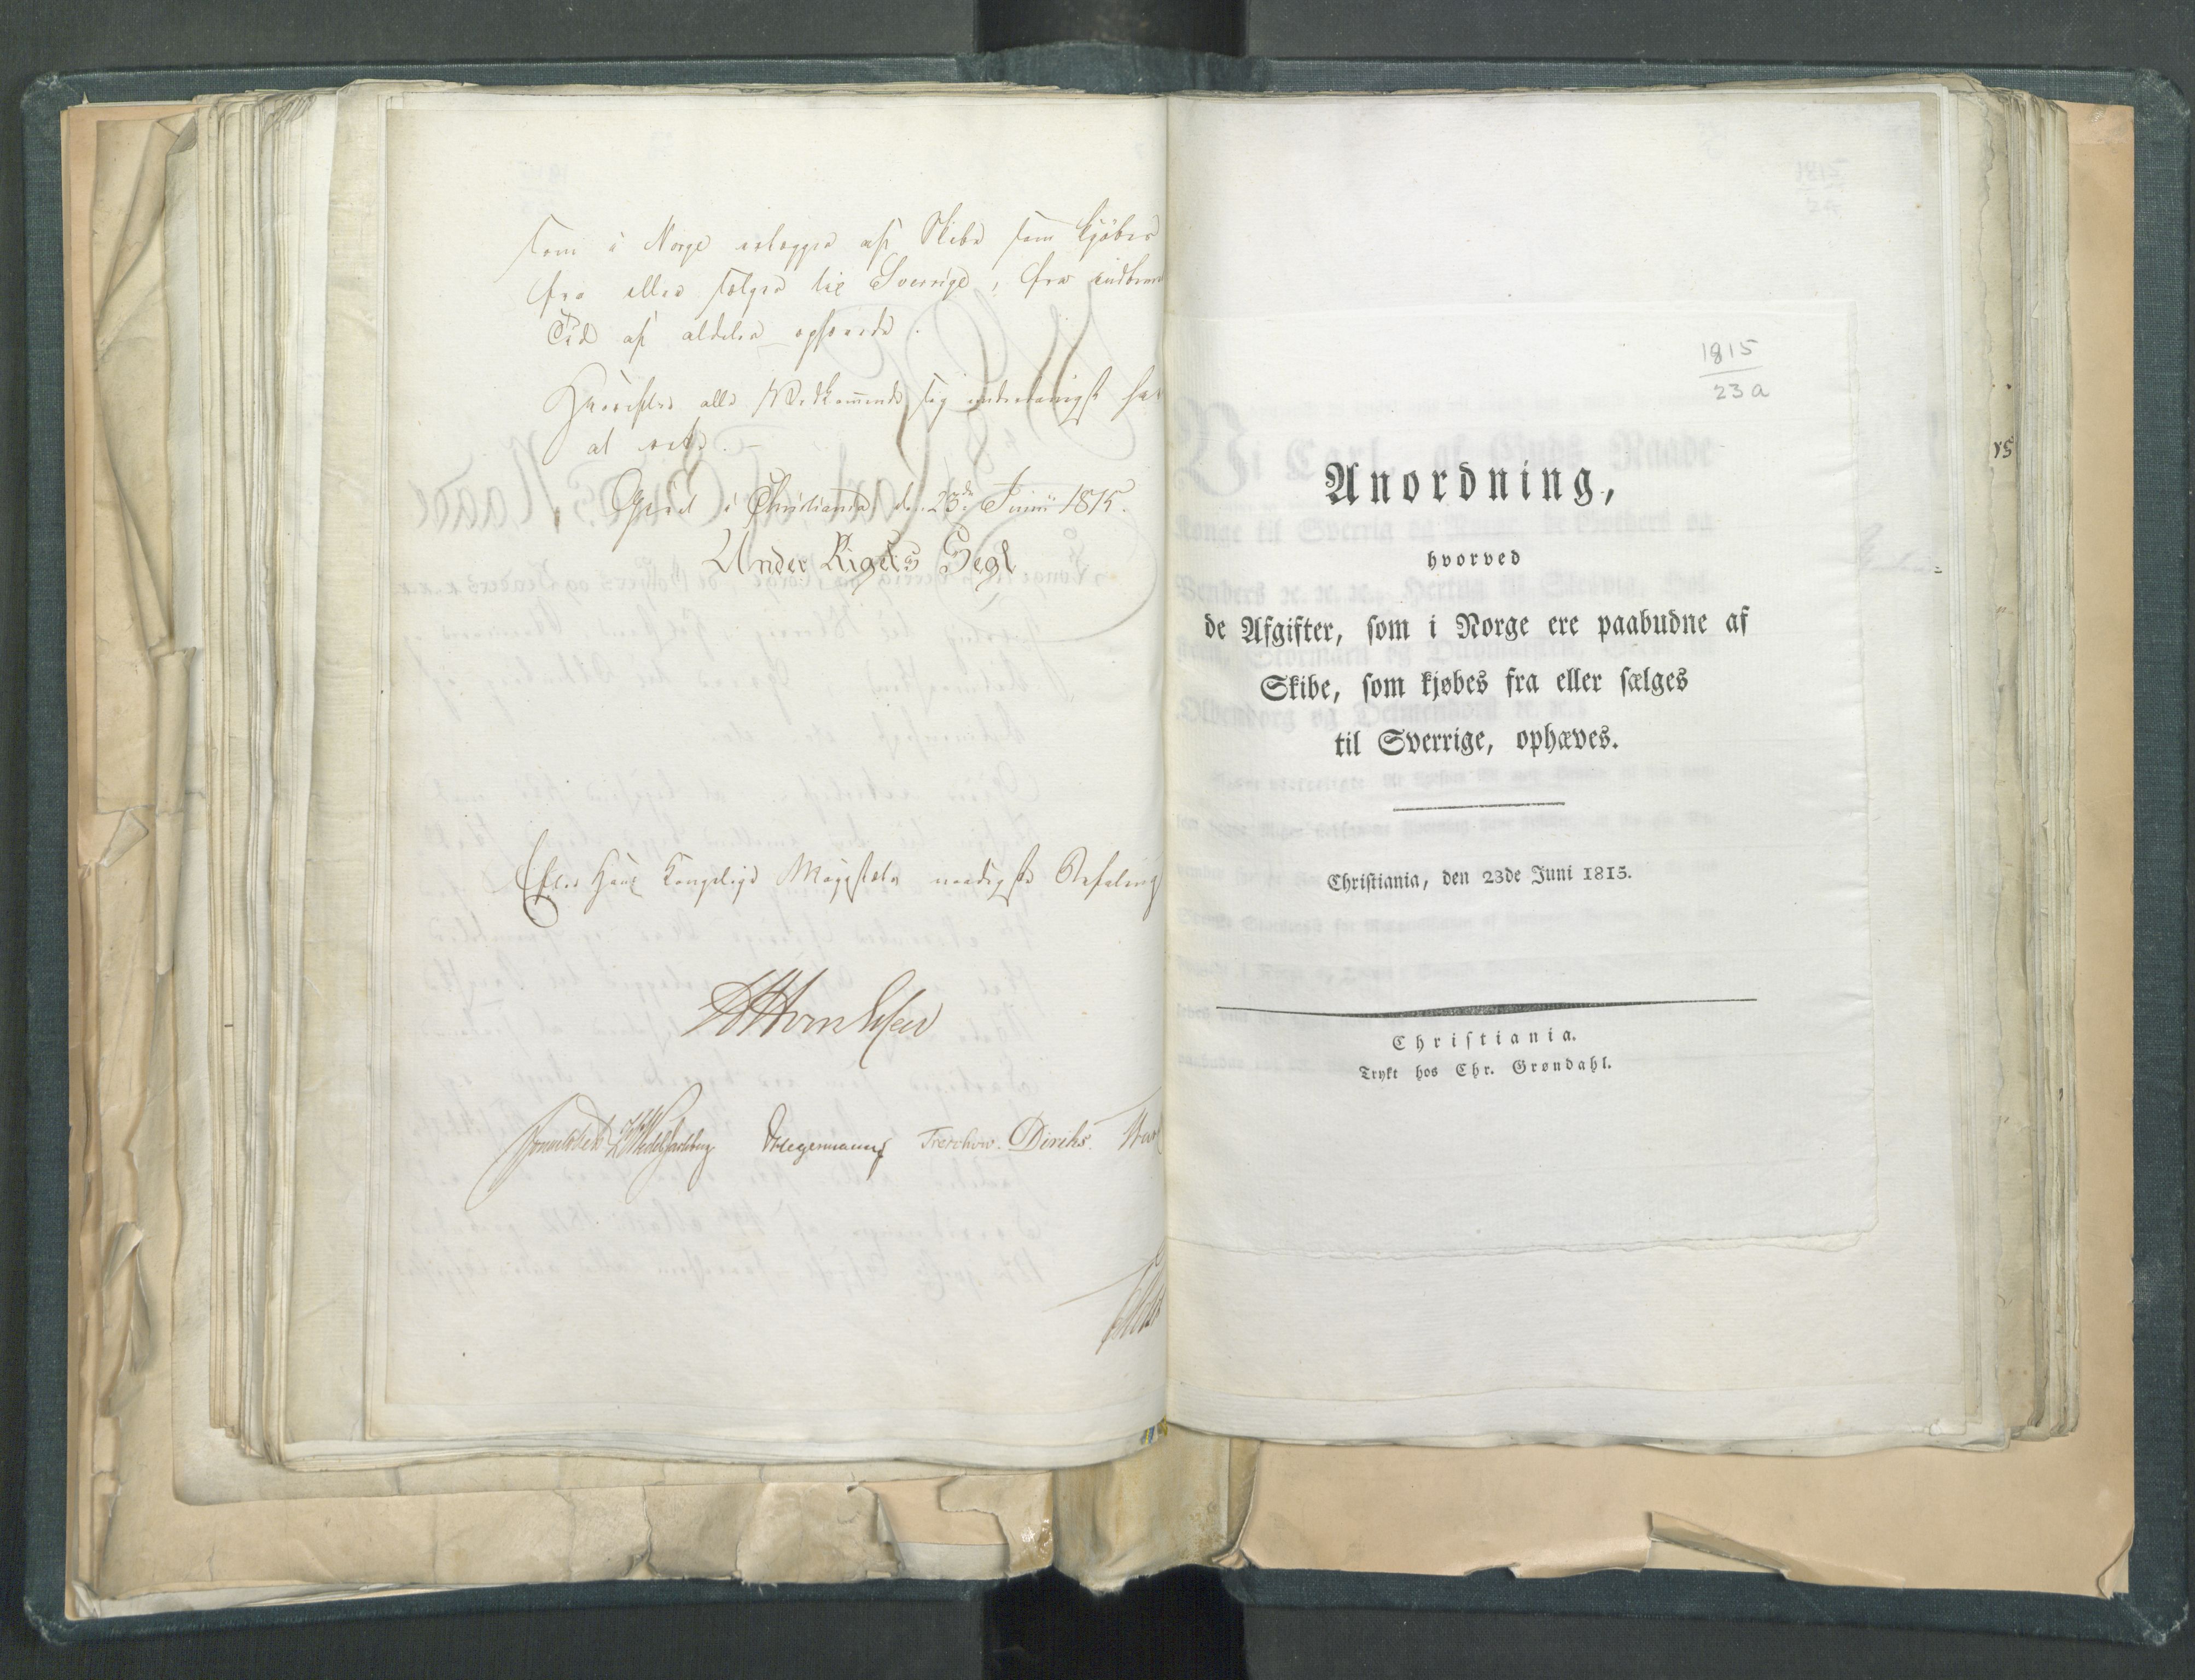 som i Norge erlægges af Skibe som kjøbes
fra eller sælges til Sverrige, fra
Tid af aldeles ophæved.
Hvorefter alle Vedkommende sig underdanigst har
at rette.
Givet i Christiania den 23de Junii 1815.
Under Rigets Segl
Efter Hans Kongelige Majestæts naadigste Befaling
Sommerhielm Wedel Jarlsberg Hegermann Treschow. Diriks.
1815
23 a
Anordning,
hvorved
de Afgifter, som i Norge ere paabudne af
Skibe, som kjøbes fra eller sælges
til Sverrige, ophæves.
Christiania, den 23de Juni 1815.
Christiania.
Trykt hos Chr. Grøndahl.